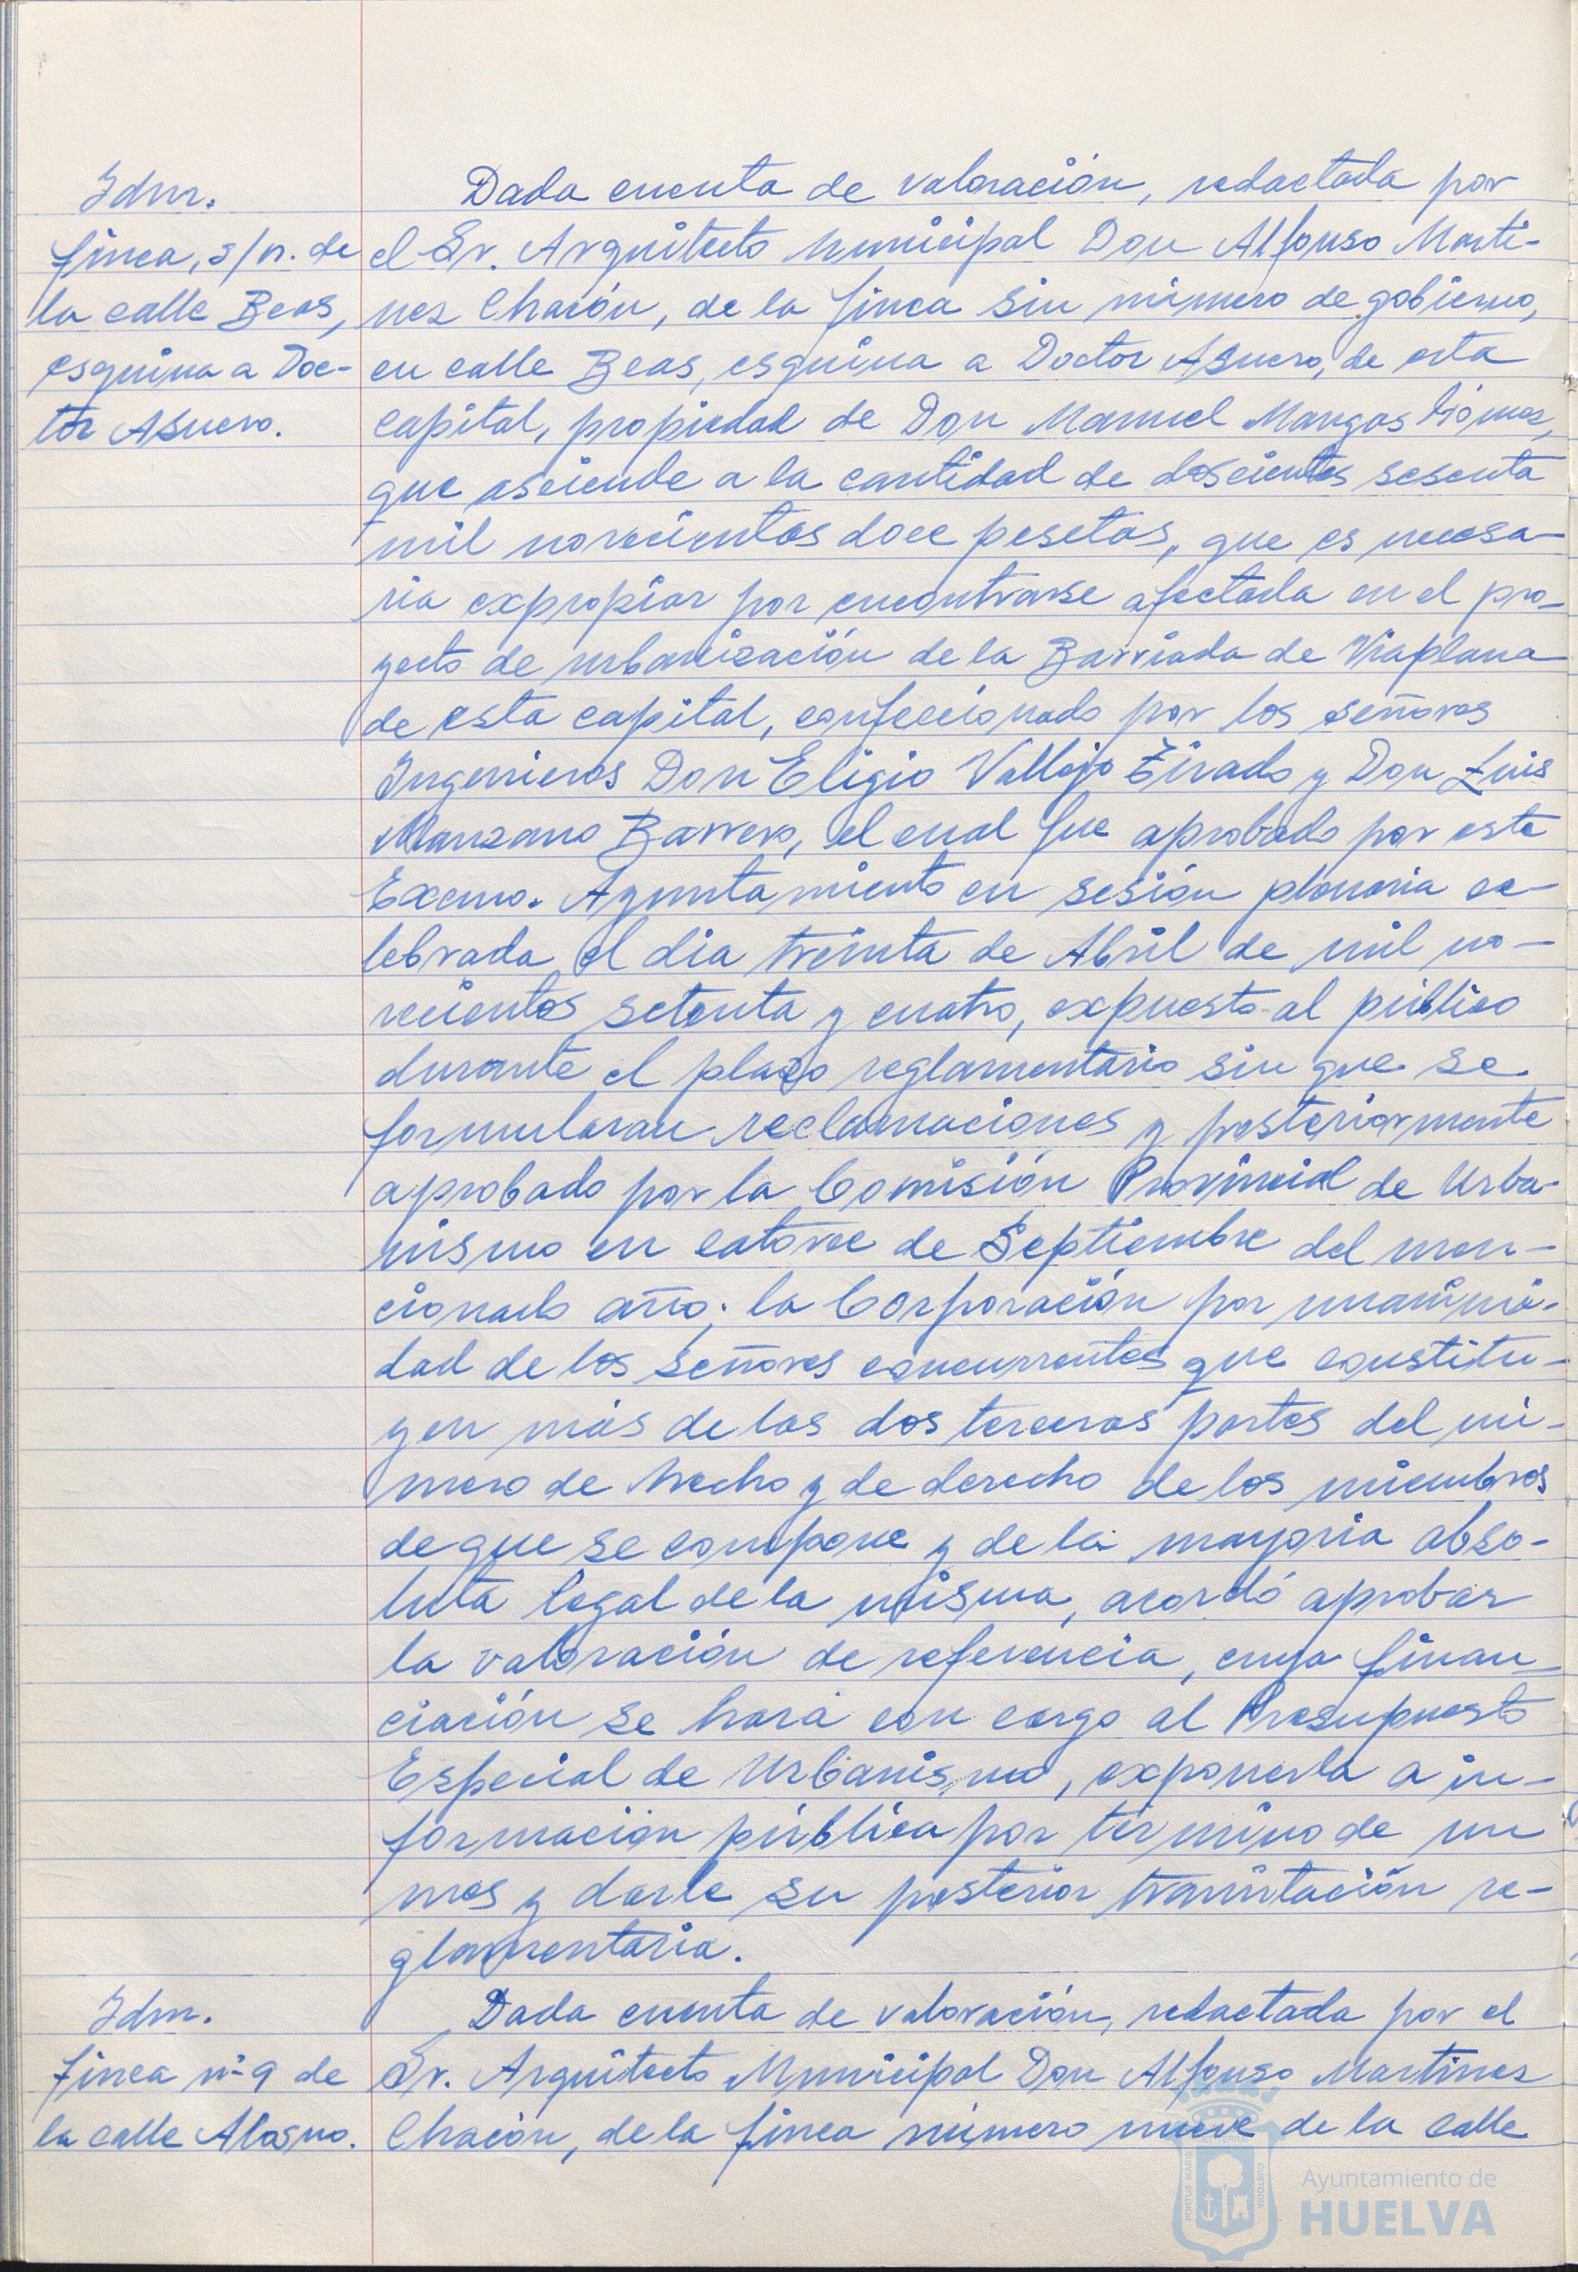 Idm.
finca, s/n. de
la calle Beas,
esquina a Doc-
tor Asuero.
Dada cuenta de valoración, redactada por
el Sr. Arquitecto Municipal Don Alfonso Marti-
nez Chacón, de la finca sin número de gobierno,
en calle Beas, esquina a Doctor Asuero, de esta
capital, propiedad de Don Manuel Mangas Gómez,
que asciende a la cantidad de doscientos sesenta
mil novecientos doce pesetas, que es necesa-
ria expropiar por encontrarse afectada en el pro-
yecto de urbanización de la Barriada de Viaplana
de esta capital, confeccionado por los señores
Ingenieros Don Eligio Vallejo Tirado y Don Luis
Manzano Barrero, el cual fue aprobado por este
Excmo. Ayuntamiento en sesión plenaria ce-
lebrada el dia treinta de Abril de mil no-
vecientos setenta y cuatro, expuesto al público
durante el plazo reglamentario sin que se
formularan reclamaciones y posteriormente
aprobado por la Comisión Provincial de Urba-
nismo en catorce de Septiembre del men-
cionado año; la Corporación por unanimi-
dad de los señores concurrentes que constitu-
yen más de las dos terceras partes del nú-
mero de hecho y de derecho de los miembros
de que se compone y de la mayoria abso-
luta legal de la misma, acordó aprobar
la valoración de referencia, cuya finan-
ciación se hará con cargo al Presupuesto
Especial de Urbanismo, exponerla a in-
formación pública por término de un
mes y darle su posterior tramitación re-
glamentaria.
Idm.
finca nº 9 de
la calle Alosno.
Dada cuenta de valoración, redactada por el
Sr. Arquitecto Municipal Don Alfonso Martinez
Chacón, de la finca número nueve de la calle
Ayuntamiento de
HUELVA